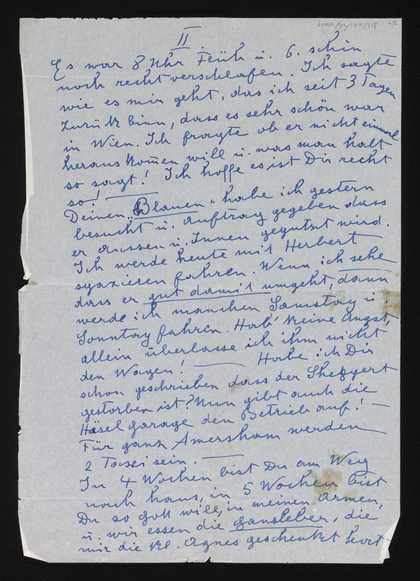 II
Es war 8 Uhr Früh u. G. schin
noch recht verschlafen. Ich sagte
wie es mir geht, das ich seit 3 Tagen
zurück binn, dass es sehr schön war
in Wien. Ich fragte ob er nicht einmal
heraus kom̄en will u. was man halt
so sagt! Ich hoffe es ist Dir recht
so! —
Deinen „Blauen“ habe ich gestern
besucht u. Auftrag gegeben dass
er aussen u. Innen geputzt wird.
Ich werde heute mit Herbert
spazieren fahren. Wenn ich sehe
dass er gut damit umgeht, dann
werde ich manchen Samstag u
Sonntag fahren. Hab' keine Angst,
allein überlasse ich ihm nicht
den Wagen! — Habe ich Dir
schon geschrieben dass der
gestorben ist? Nun gibt auch die
garage den Betrieb auf! —
Für ganz Amersham werden
2 Taxi sein. —
In 4 Wochen bist Du am Weg
nach haus, in 5 Wochen bist
Du so Gott will, in meinen Armen,
u. wir essen die Gansleber, die
mir die kl. Agnes geschenkt hat